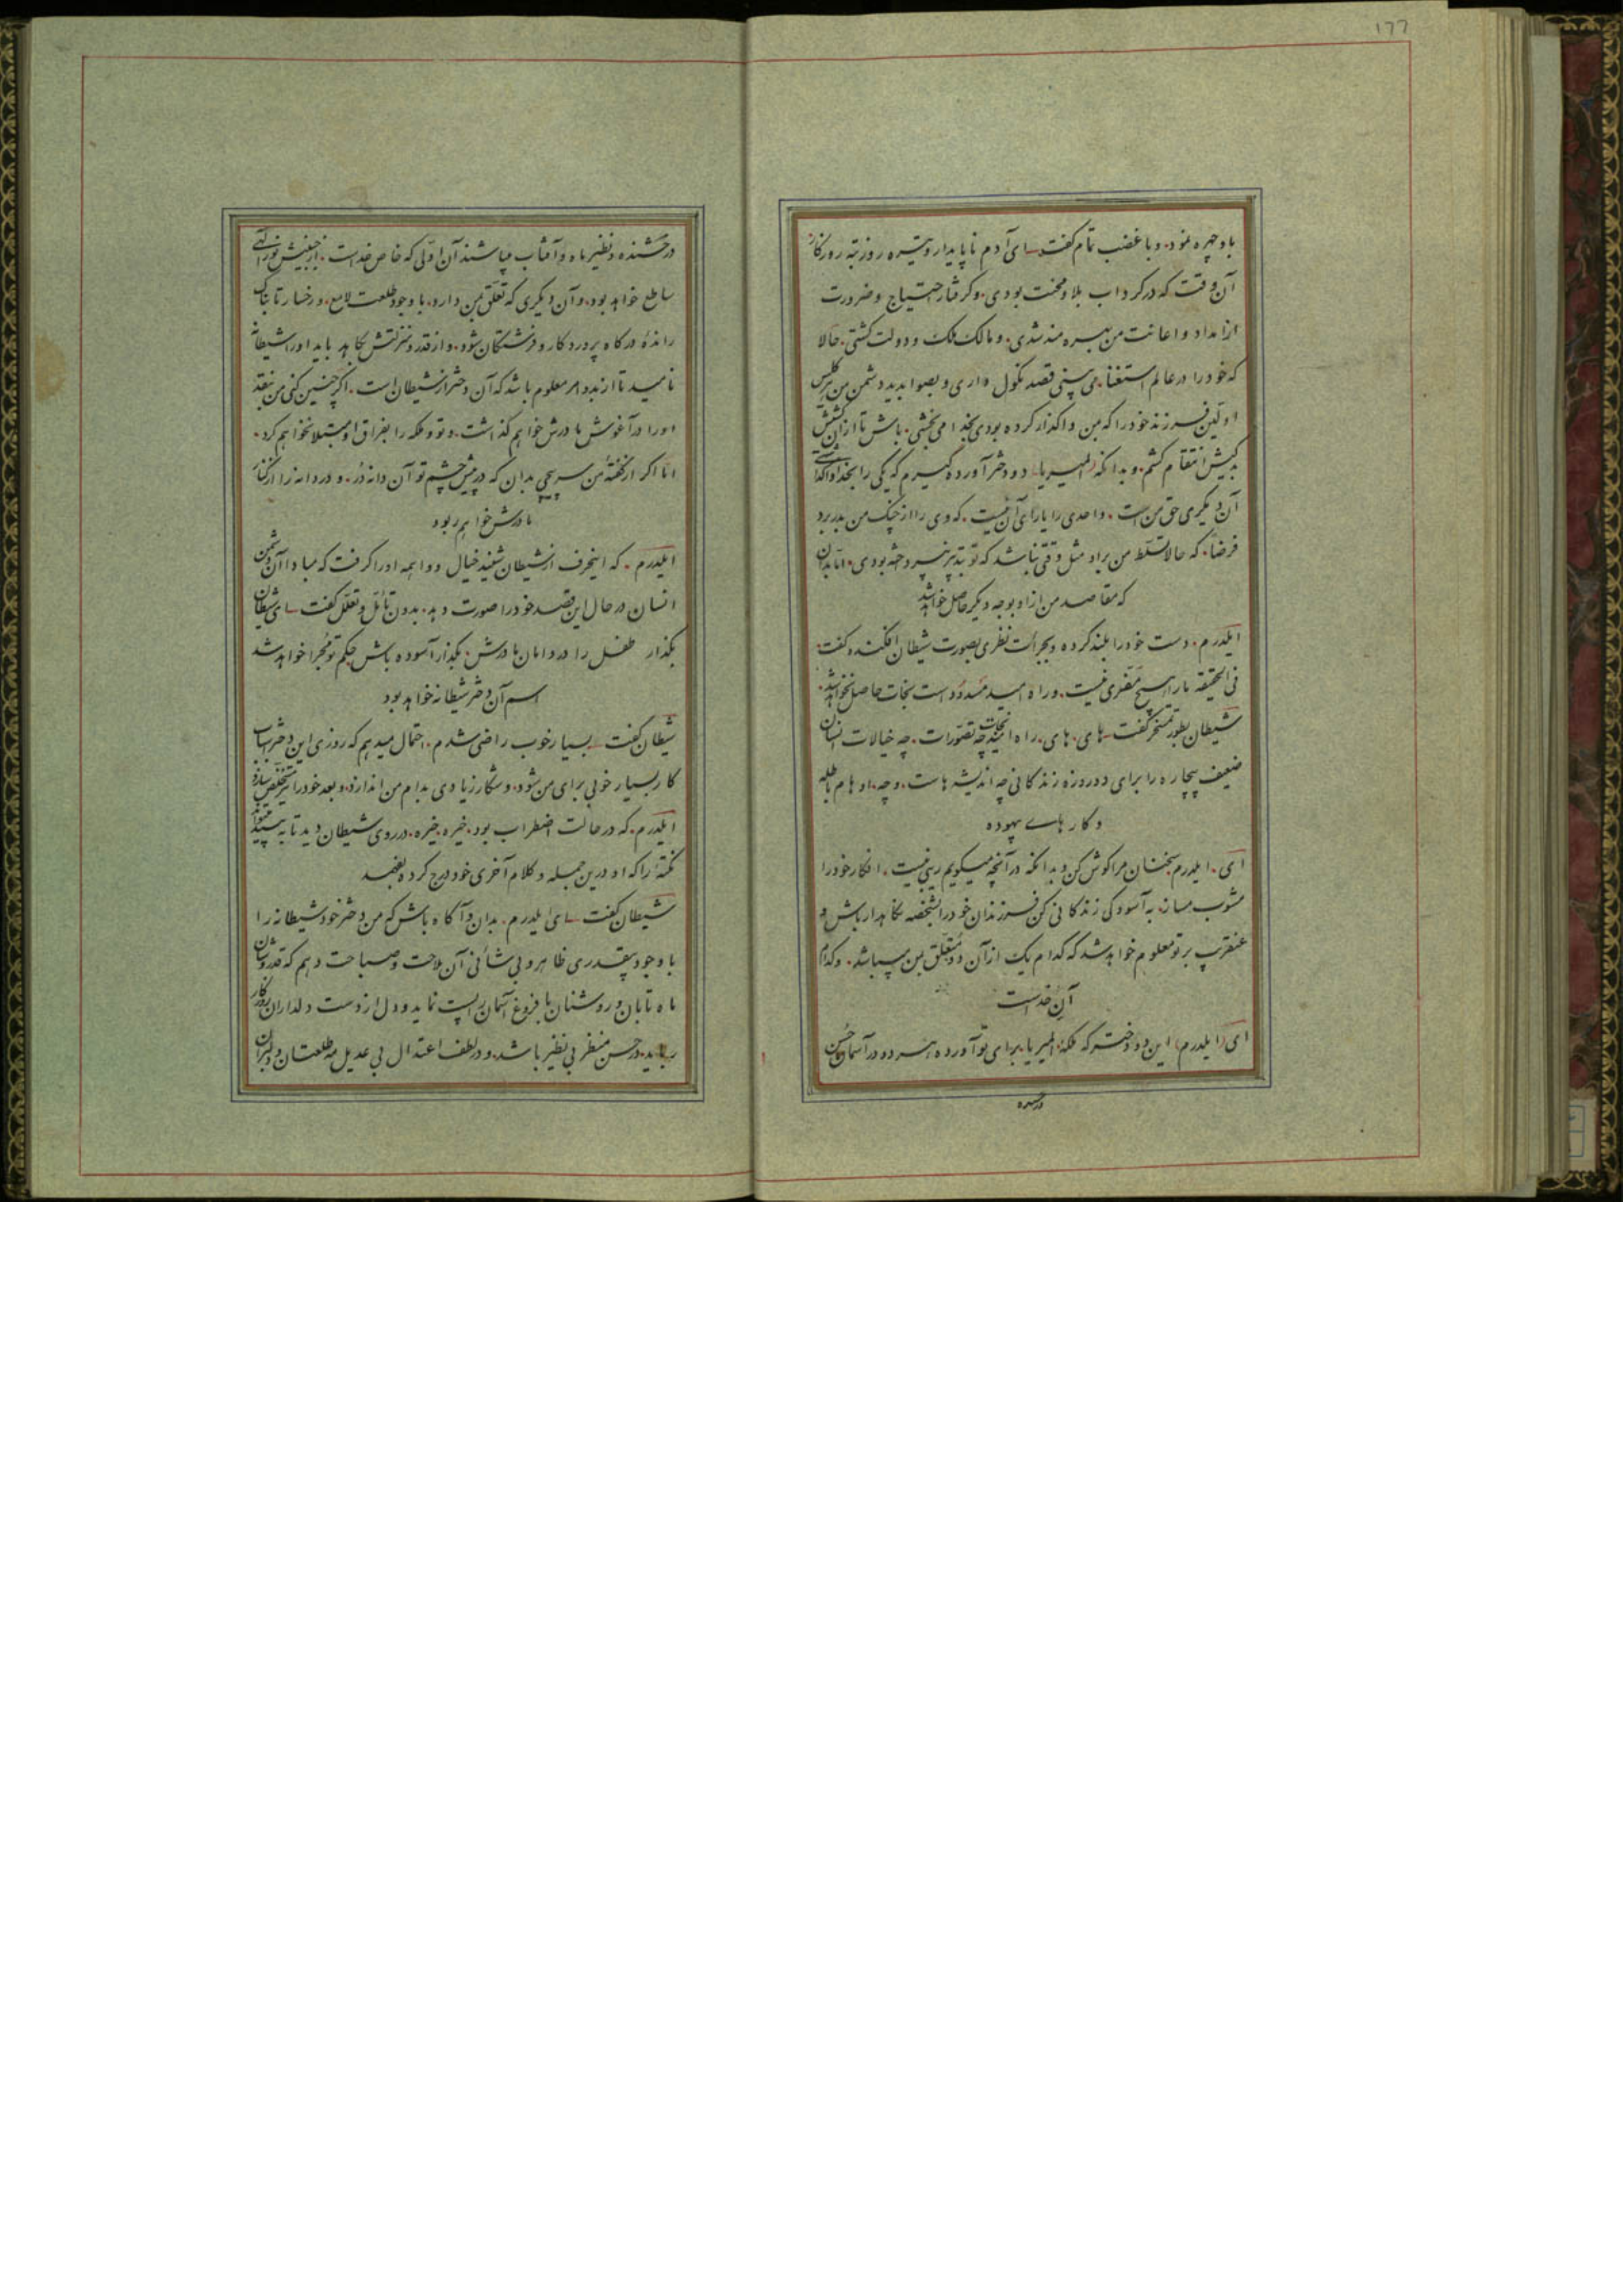 ۱۲۲
باو چهره نمود. و با غضب تمام گفت ای آدم ناپایدار و تیره روز تبه روزگار
آن وقت که در گرداب بلا و محنت بودی. و گرفتار احتیاج و ضرورت
از امداد و اعانت من بهره‌مند شدی. و مالک ملک و دولت گشتی. حالا
که خود را در عالم استغنا. می بینی قصد نکول داری و بصوابدید دشمن من
اولین فرزند خود را که بمن واگذار کرده بودی بخدا می بخشی. باش تا از آن
کیش انتقام کشم. و بدانکه المیریا. دو دختر آورده گیرم که یکی را بخدا واگذاشتی
آن دیگری حق من است. و احدی را یارای آن نیست. که وی را از چنگ من بدر برد
فرضاً. که حالا تسلط من براو مثل وقتی نباشد که تو بتدبیر پنیر وحشه بودی. اما بدان
که مقاصد من از او بوجه دیگر حاصل خواهد شد
ایلدرم. دست خود را بلند کرده و بجرأت نظری بصورت شیطان افکنده گفت.
فی الحقیقه ما را هیچ مفری نیست. و راه امید مسدود است نجات حاصل نخواهد شد.
شیطان بطور تمسخر گفت های. های. راه امید نجات چه تصورات. چه خیالات انسان
ضعیف بیچاره را برای دو روزه زندگانی چه اندیشه هاست. و چه. اوهام باطله
و کارهای بیهوده
ای. ایلدرم بسخنان من گوش کن و بدانکه در آنچه میگویم ریبی نیست. افکار خود را
مشوب مساز. به آسودگی زندگانی کن فرزندان خود را بشخصه نگاهدار باش و
عنقریب بر تو معلوم خواهد شد که کدام یک از آن دو متعلق بمن میباشد. و کدام
آن خداست
ای ایلدرم. این دو دختر که ملکه المیریا. برای تو آورده هر دو در آسمان حسن
درخشنده
درخشنده و نظیر ماه و آفتاب میباشند آن اولی که خاص خداست. از جبینش نور الهی
ساطع خواهد بود. و آن دیگری که تعلق بمن دارد. با وجود طلعت لامع. و رخسار تابناک
رانده درگاه پروردگار و فرشتگان شود. و از قدر و منزلتش بکاهد باید او را شیطانه
نامید تا از بدو امر معلوم باشد که آن دختر از شیطان است. اگر چنین کنی من بنقد
او را در آغوش مادرش خواهم گذاشت. و تو و ملکه را بفراق او مبتلا نخواهم کرد.
اما اگر از گفته من سرپیچی بدان که در پیش چشم تو آن دانه در. و دردانه را از کنار
مادرش خواهم ربود
ایلدرم. که این حرف از شیطان شنید خیال و واهمه او را گرفت که مبادا آن دشمن
انسان در حال این قصد خود را صورت دهد. بدون تأمل و تعلل گفت ای شیطان
بگذار طفل را در دامان مادرش. بگذار آسوده باش حکم تو مجرا خواهد شد
اسم آن دختر شیطانه خواهد بود
شیطان گفت بسیار خوب راضی شدم. احتمال میدهم که روزی این دختر اسباب
کار بسیار خوبی برای من شود. و شکار زیادی بدام من اندازد. و بعد خود را نیز
ایلدرم. که در حالت اضطراب بود. خیره. خیره. در روی شیطان دید تا به بیند
نکته را که او درین جمله و کلام آخری خود درج کرده بفهمد
شیطان گفت ای ایلدرم. بدان و آگاه باش که من دختر خود شیطانه را
با وجود بیقدری ظاهر و بی شأنی آن ملاحت و صباحت دهم که قدر و شأن
ماه تابان و روشنان با فروغ آسمان را پست نماید و دل از دست دلداران روزگار
رباید. در حسن منظر بی نظیر باشد. و در لطف اعتدال بی عدیل مه طلعتان و دلبران